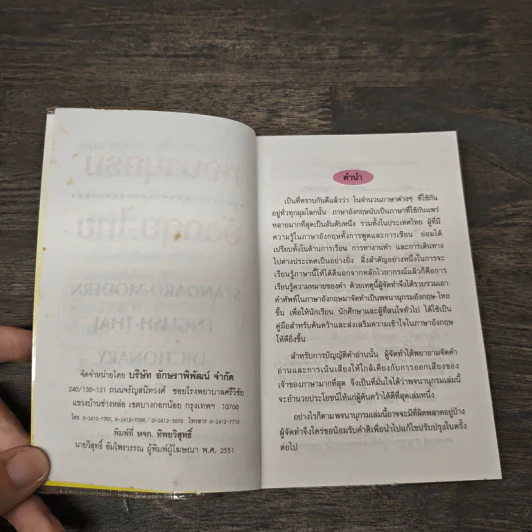 จัดจำหน่ายโดย บริษัท อักษราพิพัฒน์ จำกัด
240/130-131 ถนนจรัญสนิทวงศ์ ซอยโรงพยาบาลศรีวิชัย
แขวงบ้านช่างหล่อ เขตบางกอกน้อย กรุงเทพฯ 10700
พิมพ์ที่ หจก. ทิพยวิสุทธิ์
นายวิสุทธิ์ อัมไพรวรรณ ผู้พิมพ์ผู้โฆษณา พ.ศ. 2551
คำนำ
เป็นที่ทราบกันดีแล้วว่า ในจำนวนภาษาต่างๆ ที่ใช้กัน
อยู่ทั่วทุกมุมโลกนั้น ภาษาอังกฤษนับเป็นภาษาที่ใช้กันแพร่
หลายมากที่สุดเป็นอันดับหนึ่ง รวมทั้งในประเทศไทย ผู้ที่มี
ความรู้ในภาษาอังกฤษทั้งการพูดและการเขียน ย่อมได้
เปรียบทั้งในด้านการเรียน การหางานทำ และการเดินทาง
ไปต่างประเทศเป็นอย่างยิ่ง สิ่งสำคัญอย่างหนึ่งในการจะ
เรียนรู้ภาษานี้ให้ได้ดีนอกจากหลักไวยากรณ์แล้วก็คือการ
เรียนรู้ความหมายของคำ ด้วยเหตุนี้ผู้จัดทำจึงได้รวบรวมเอา
คำศัพท์ในภาษาอังกฤษมาจัดทำเป็นพจนานุกรมอังกฤษ-ไทย
ขึ้น เพื่อให้นักเรียน นักศึกษาและผู้ที่สนใจทั่วไป ได้ใช้เป็น
คู่มือสำหรับค้นคว้าและส่งเสริมความเข้าใจในภาษาอังกฤษ
ให้ดียิ่งขึ้น
สำหรับการบัญญัติคำอ่านนั้น ผู้จัดทำได้พยายามจัดคำ
อ่านและการเน้นเสียงให้ใกล้เคียงกับการออกเสียงของ
เจ้าของภาษามากที่สุด จึงเป็นที่มั่นใจได้ว่าพจนานุกรมเล่มนี้
จะอำนวยประโยชน์ให้แก่ผู้ค้นคว้าได้ดีที่สุดเล่มหนึ่ง
อย่างไรก็ตามพจนานุกรมเล่มนี้อาจจะมีที่ผิดพลาดอยู่บ้าง
ผู้จัดทำจึงใคร่ขอน้อมรับคำติเพื่อนำไปแก้ไขปรับปรุงในครั้ง
ต่อไป